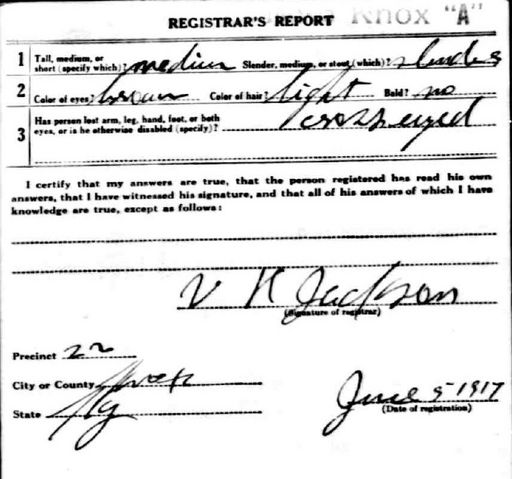 Knox "A"
REGISTRAR'S REPORT
1 Tall, medium, or short (specify which)? medium Slender, medium, or stout (which)? slender
2 Color of eyes? brown Color of hair? light Bald? no
3 Has person lost arm, leg, hand, foot, or both eyes, or is he otherwise disabled (specify)? cross eyed
I certify that my answers are true, that the person registered has read his own
answers, that I have witnessed his signature, and that all of his answers of which I have
knowledge are true, except as follows:
V K Jackson
(Signature of registrar)
Precinct 22
City or County Knox
State Ky
June 5 1917
(Date of registration)